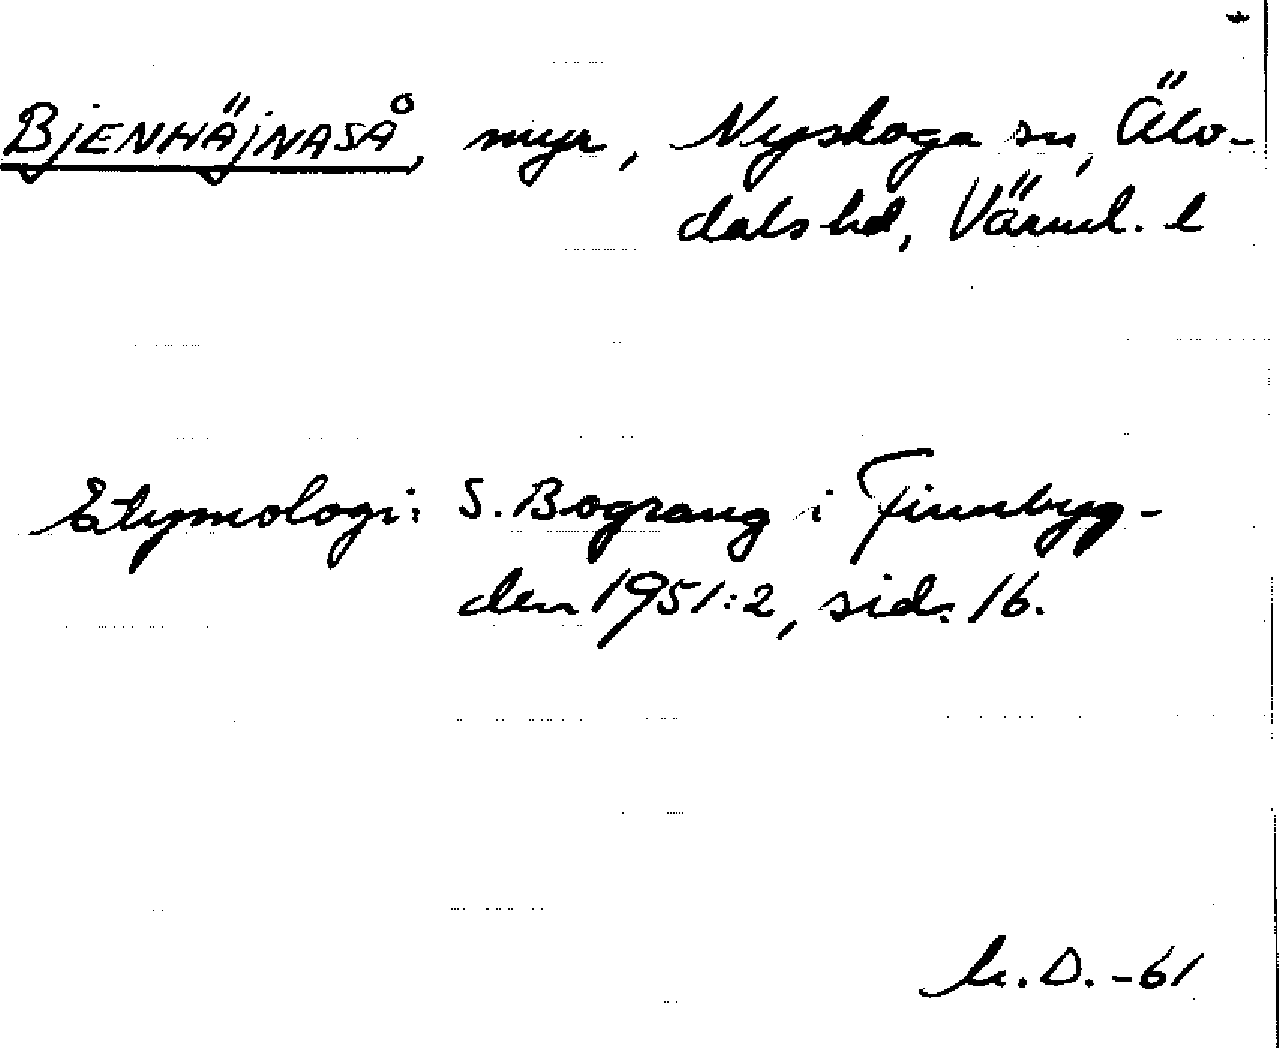 BjENHÄjNASÅ, myr, Nyskoga sn, Älv-
dals hd, Värml. l
Etymologi: S. Bograng i Finnbyg-
den 1951:2, sid. 16.
D. -61